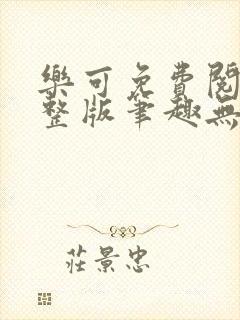 樂可免費閱
整版筆趣無
莊景忠